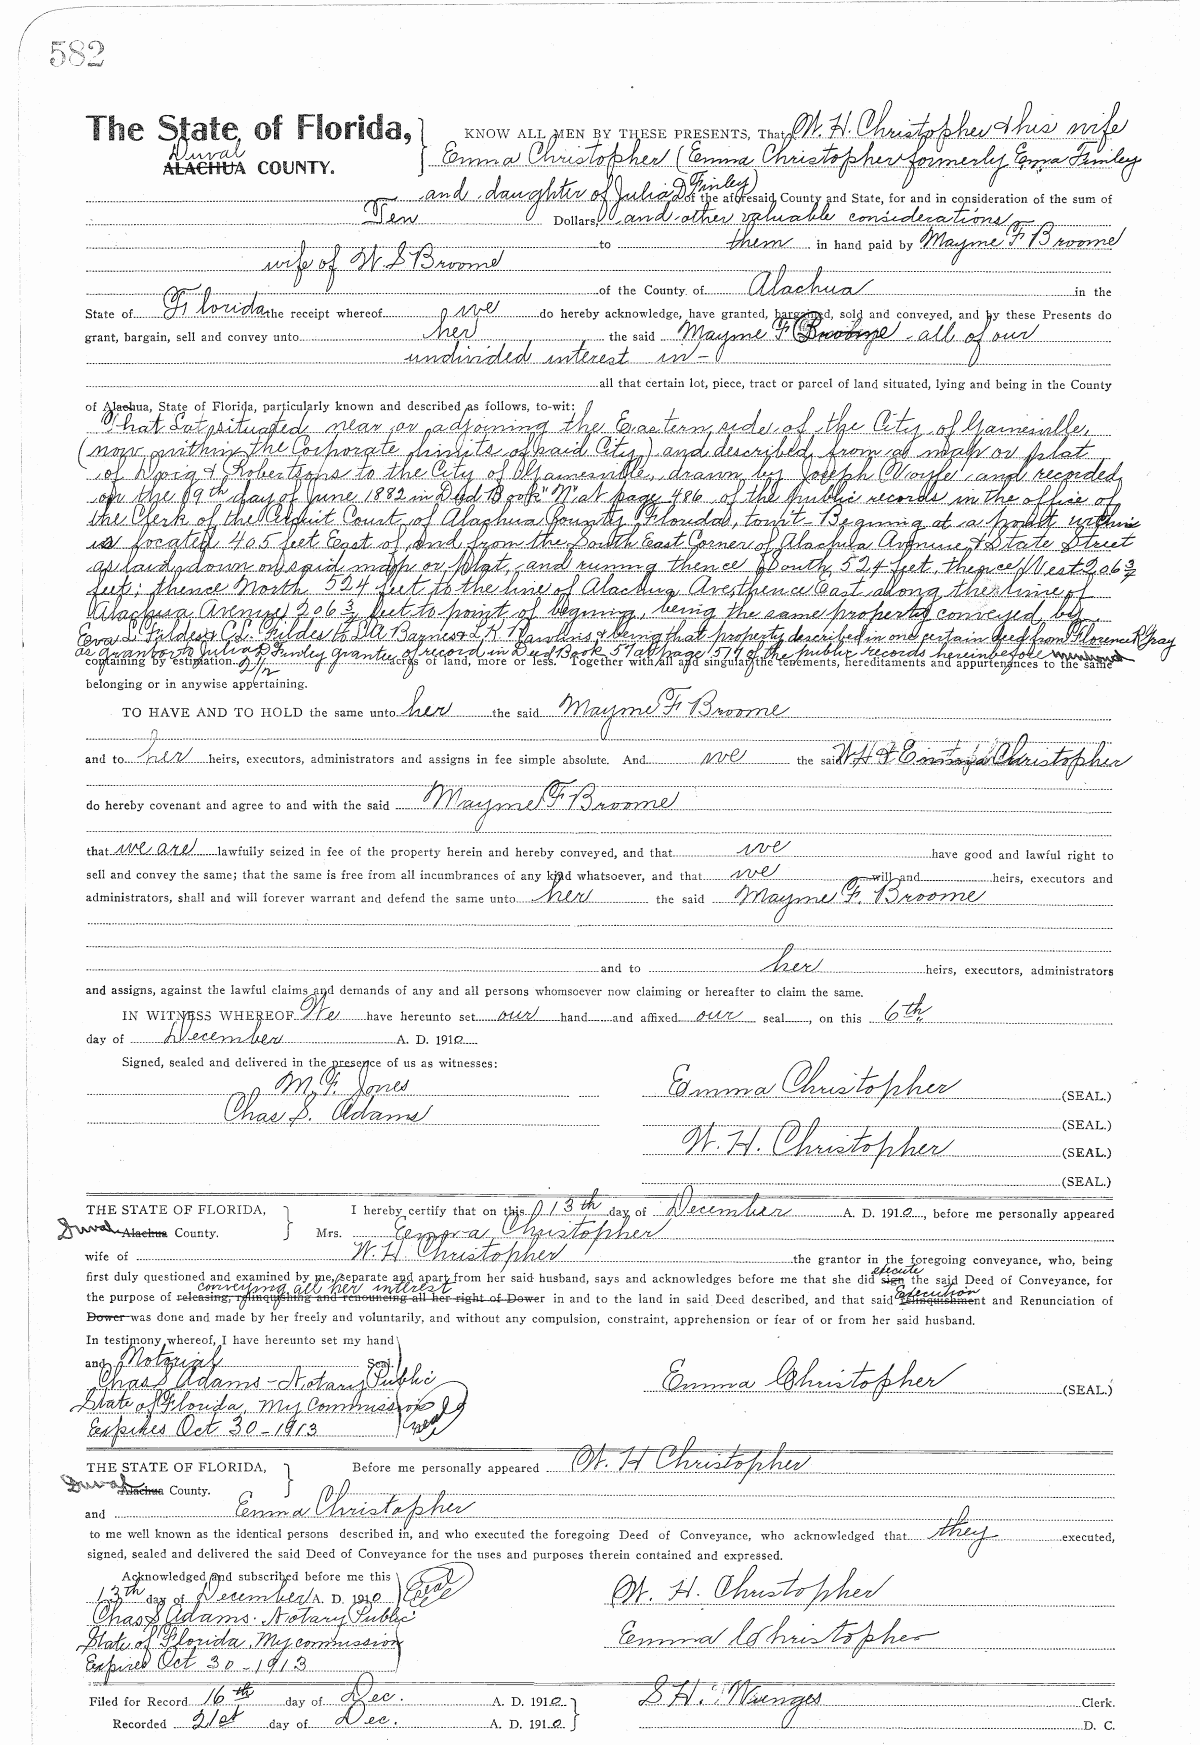 582
The State of Florida, KNOW ALL MEN BY THESE PRESENTS, That W. H. Christopher & his wife
Duval
ALACHUA COUNTY. Emma Christopher (Emma Christopher formerly Emma Finley
and daughter of Julia D Finley) of the aforesaid County and State, for and in consideration of the sum of
Ten Dollars, and other valuable considerations
to them in hand paid by Mayme F Broome
wife of W. S Broome
of the County of Alachua in the
State of Florida the receipt whereof we do hereby acknowledge, have granted, bargained, sold and conveyed, and by these Presents do
grant, bargain, sell and convey unto her the said Mayme F Broome all of our
undivided interest in -
all that certain lot, piece, tract or parcel of land situated, lying and being in the County
of Alachua, State of Florida, particularly known and described as follows, to-wit:
That Lot situated near or adjoining the Eastern side of the City of Gainesville,
(now within the Corporate limits of said City) and described from a map or plat
of Doig & Robertsons to the City of Gainesville, drawn by Joseph and recorded
on the 19th day of June 1882 in Deed Book "N" at page 486 of the public records in the office of
the Clerk of the Circuit Court of Alachua County Florida, towit - Begining at a point which
is located 405 feet East of and from the South East Corner of Alachua Avenue & State Street
as laid down on said map or plat, and runing thence South 524 feet, thence West 206 3/4
feet; thence North 524 feet to the line of Alachua Ave, thence East along the line of
Alachua Avenue 206 3/4 feet to point of begining, being the same property conveyed by
Eva L. Fildes & C. L. Fildes to D A Barnes & L. K. Rawlins & being that property described in one certain deed from Florence R Gray
as grantor to Julia D Finley grantee of record in Deed Book 57 at page 517 of the public records hereinbefore mentioned
containing by estimation 2 1/2 acres of land, more or less. Together with all and singular the tenements, hereditaments and appurtenances to the same
belonging or in anywise appertaining.
TO HAVE AND TO HOLD the same unto her the said Mayme F Broome
and to her heirs, executors, administrators and assigns in fee simple absolute. And we the said W H & Emma Christopher
do hereby covenant and agree to and with the said Mayme F Broome
that we are lawfully seized in fee of the property herein and hereby conveyed, and that we have good and lawful right to
sell and convey the same; that the same is free from all incumbrances of any kind whatsoever, and that we will and heirs, executors and
administrators, shall and will forever warrant and defend the same unto her the said Mayme F. Broome
and to her heirs, executors, administrators
and assigns, against the lawful claims and demands of any and all persons whomsoever now claiming or hereafter to claim the same.
IN WITNESS WHEREOF We have hereunto set our hand and affixed our seal, on this 6th
day of December A. D. 1910
Signed, sealed and delivered in the presence of us as witnesses:
M. F. Jones Emma Christopher (SEAL.)
Chas S. Adams (SEAL.)
W. H. Christopher (SEAL.)
(SEAL.)
THE STATE OF FLORIDA, I hereby certify that on this 13th day of December A. D. 1910, before me personally appeared
Duval Alachua County. Mrs. Emma Christopher
wife of W. H. Christopher the grantor in the foregoing conveyance, who, being
execute
first duly questioned and examined by me, separate and apart from her said husband, says and acknowledges before me that she did sign the said Deed of Conveyance, for
conveying all her interest execution
the purpose of releasing, relinquishing and renouncing all her right of Dower in and to the land in said Deed described, and that said relinquishment and Renunciation of
Dower was done and made by her freely and voluntarily, and without any compulsion, constraint, apprehension or fear of or from her said husband.
In testimony whereof, I have hereunto set my hand
and Notorial Seal.
Chas S Adams - Notary Public Emma Christopher (SEAL.)
State of Florida, My Commission
Expires Oct 30 - 1913 (Seal)
THE STATE OF FLORIDA, Before me personally appeared W. H Christopher
Duval Alachua County.
and Emma Christopher
to me well known as the identical persons described in, and who executed the foregoing Deed of Conveyance, who acknowledged that they executed,
signed, sealed and delivered the said Deed of Conveyance for the uses and purposes therein contained and expressed.
Acknowledged and subscribed before me this
13th day of December A. D. 1910 (Seal) W. H. Christopher
Chas S Adams. Notary Public
State of Florida, My commission Emma Christopher
Expires Oct 30 - 1913
Filed for Record 16th day of Dec. A. D. 1910 S. H. Wienges Clerk.
Recorded 21st day of Dec. A. D. 1910 D. C.